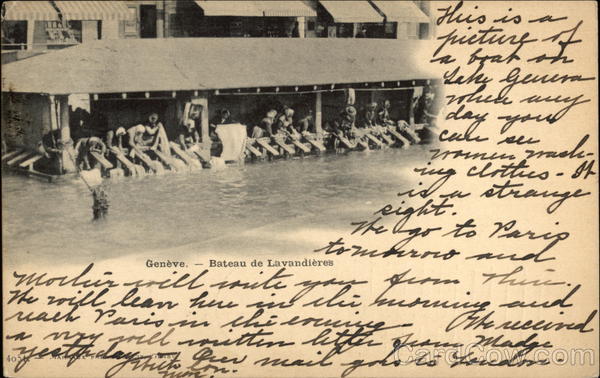 This is a
picture of
a boat on
Lake Geneva
when any
day you
can see
women wash-
ing clothes - It
is a strange
sight.
We go to Paris
tomorrow and
Genève. - Bateau de Lavandières
Mother will write you from there.
We will leave here in the morning and
reach Paris in the evening We received
a very well written letter from Madge
yesterday. Our mail goes to London
CardCow.com